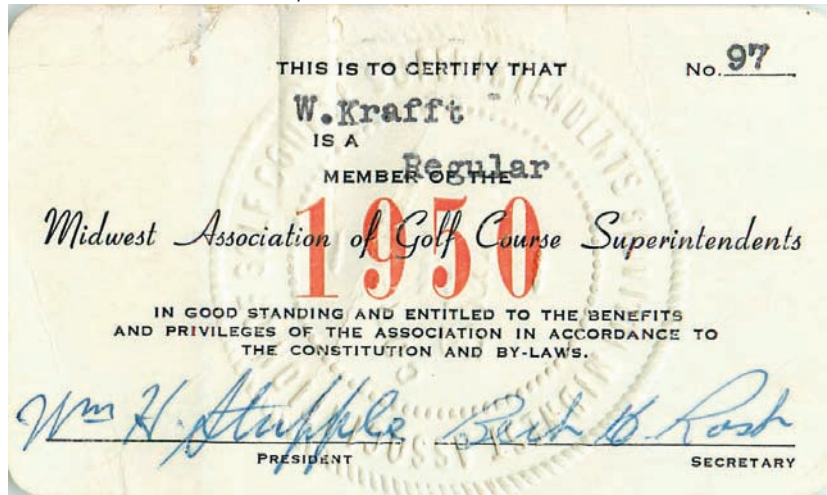 THIS IS TO CERTIFY THAT No. 97
W. Krafft
IS A
Regular
MEMBER OF THE
1950
Midwest Association of Golf Course Superintendents
IN GOOD STANDING AND ENTITLED TO THE BENEFITS
AND PRIVILEGES OF THE ASSOCIATION IN ACCORDANCE TO
THE CONSTITUTION AND BY-LAWS.
Wm H. Stupple
PRESIDENT SECRETARY